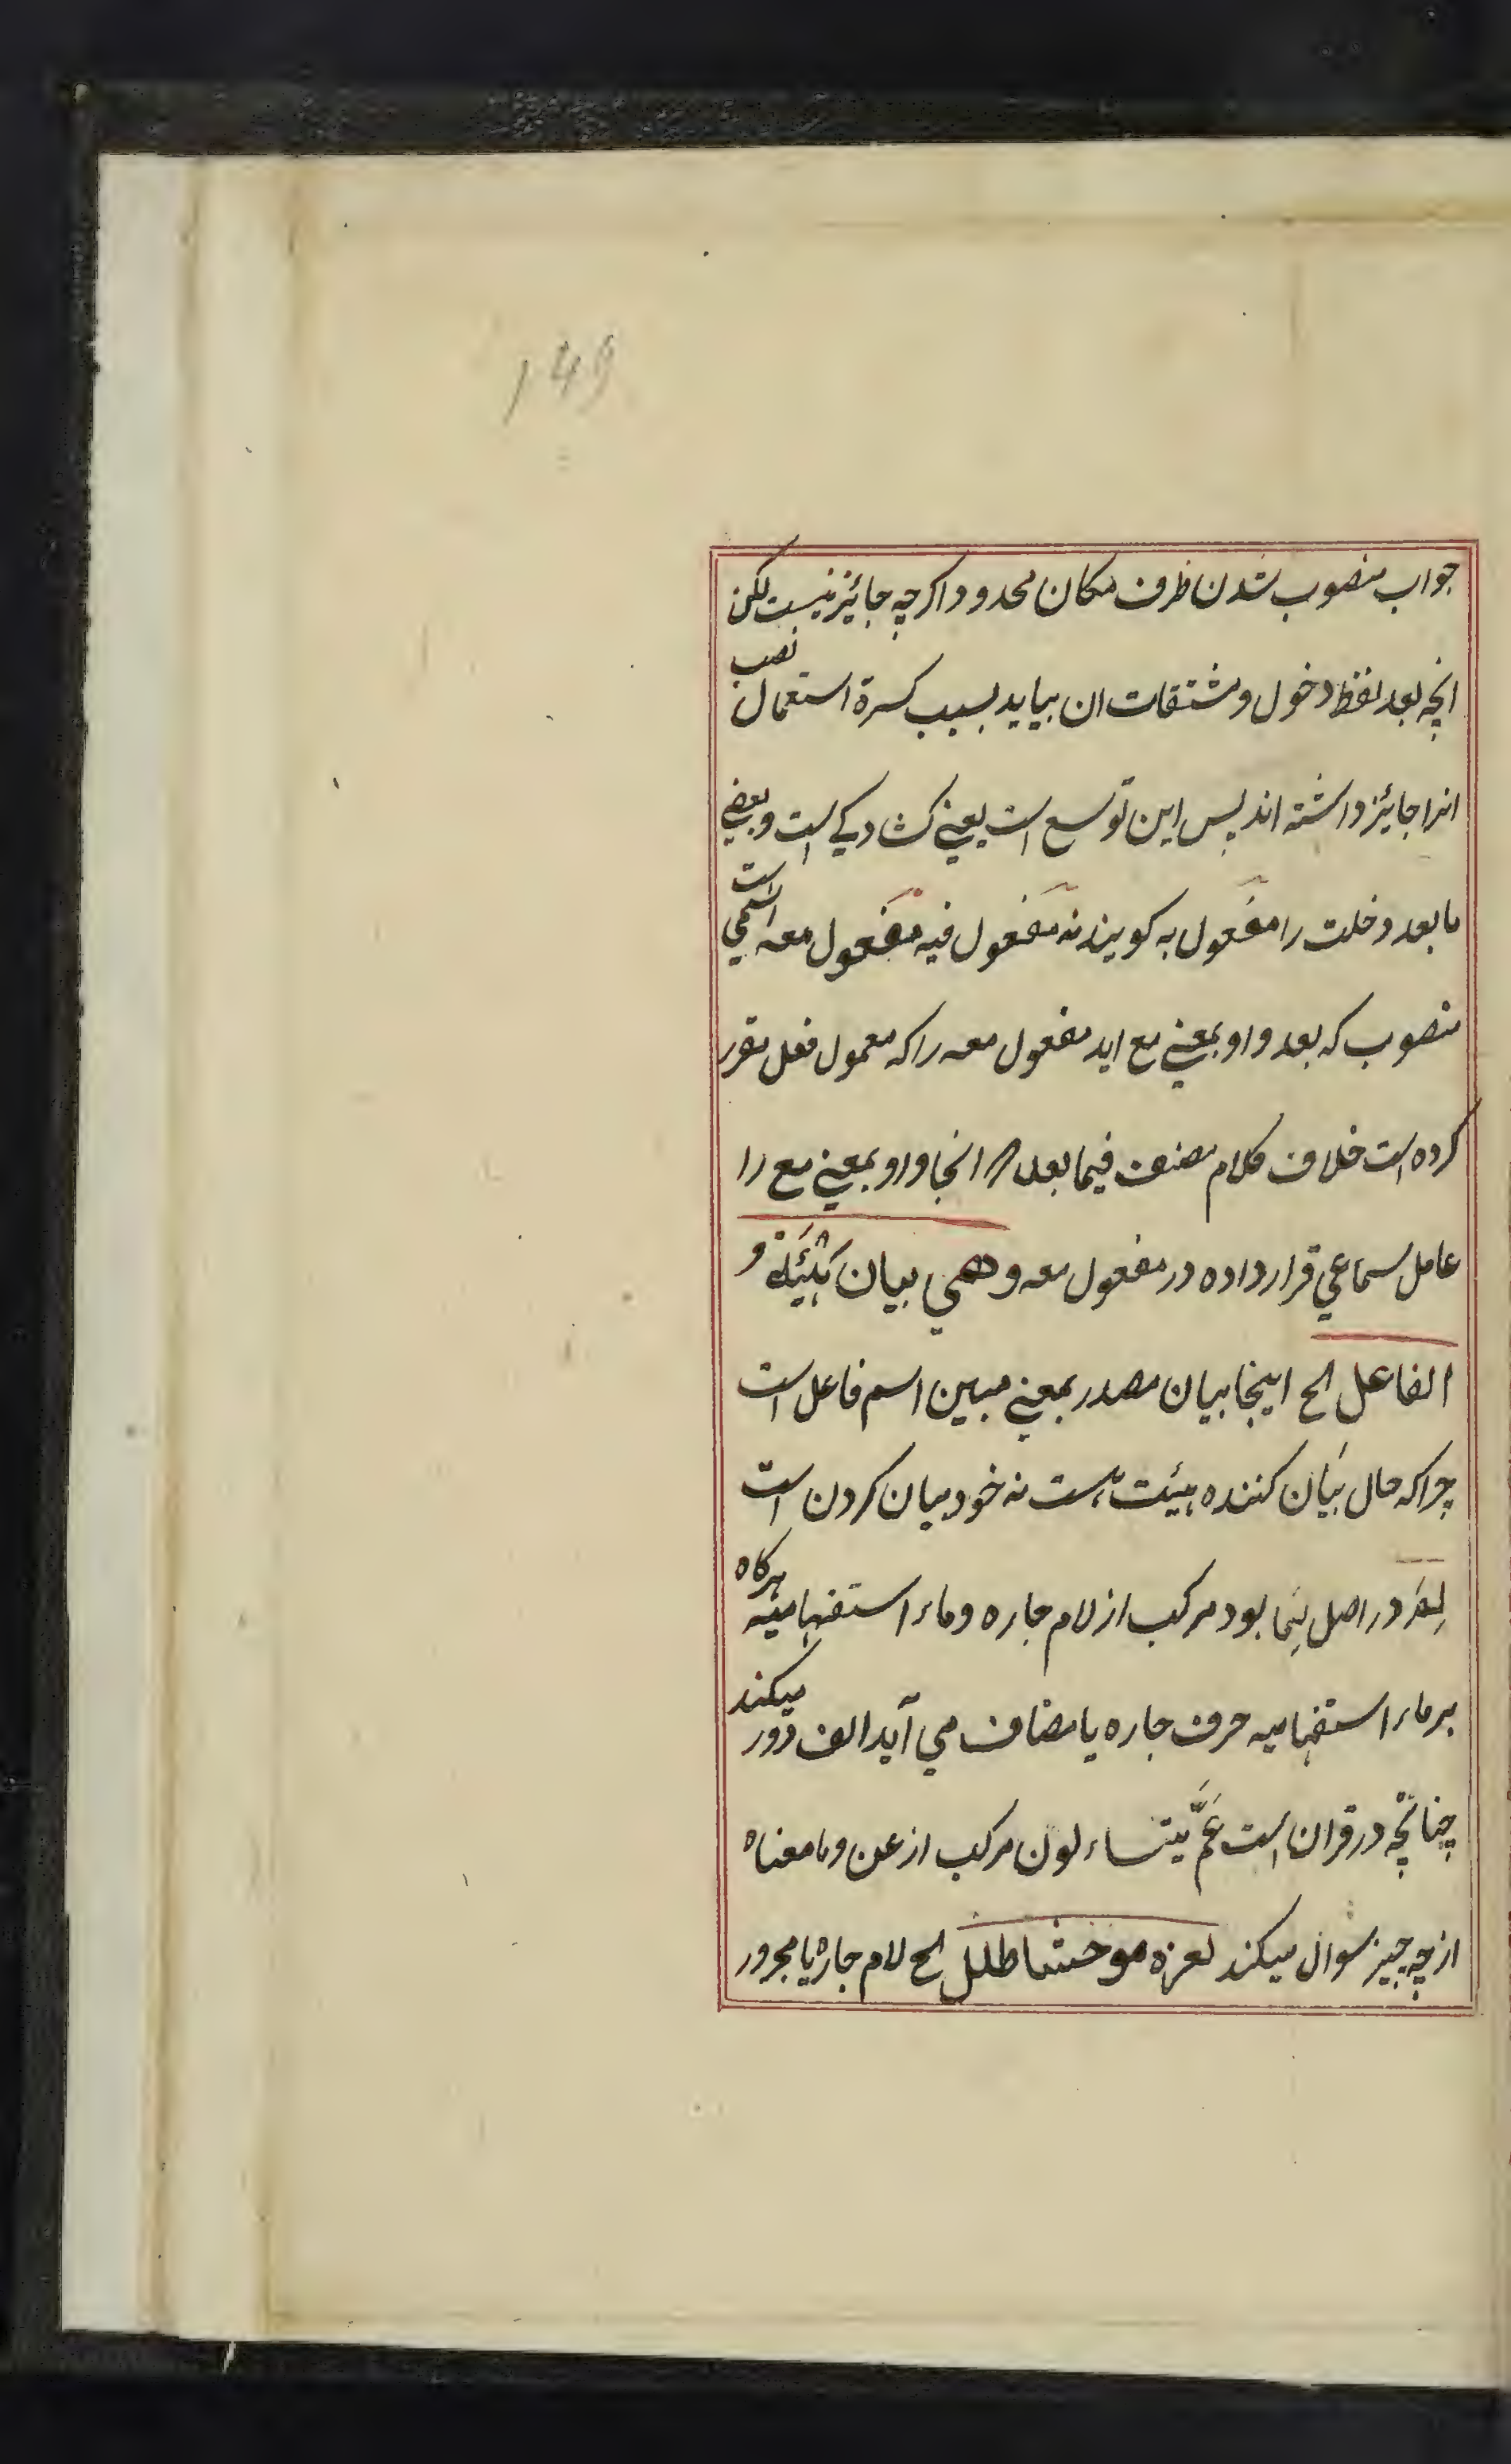 149
جواب منصوب شدن ظرف مکان محدود اکرچه جائیز نیست لکن
انچه بعد لفظ دخول و مشتقات ان بیاید بسبب کسرة استعمال نصب
انرا جائیز داشته اند پس این توسع است یعنی کشادکی است و بعضی
ما بعد دخلت را مفعول به کویند نه مفعول فیه مفعول معه اسمی است
منصوب که بعد واو بمعنی مع اید مفعول معه را که معمول فعل مقرر
کرده است خلاف کلام مصنف فیما بعد انجا واو بمعنی مع را
عامل سماعی قرار داده در مفعول معه و هی بیان هیئة و
الفاعل الخ اینجا بیان مصدر بمعنی مبین اسم فاعل است
چرا که حال بیان کننده هیئت است نه خود بیان کردن است
لم در اصل لما بود مرکب از لام جاره و ماء استفهامیه هرکاه
بر ماء استفهامیه حرف جاره یا مضاف می آید الف دور میکند
چنانچه در قران است عم یتساءلون مرکب از عن و ما معناه
از چه چیز سوال میکند لعزه موحشا طلل الخ لام جاره یا مجرور